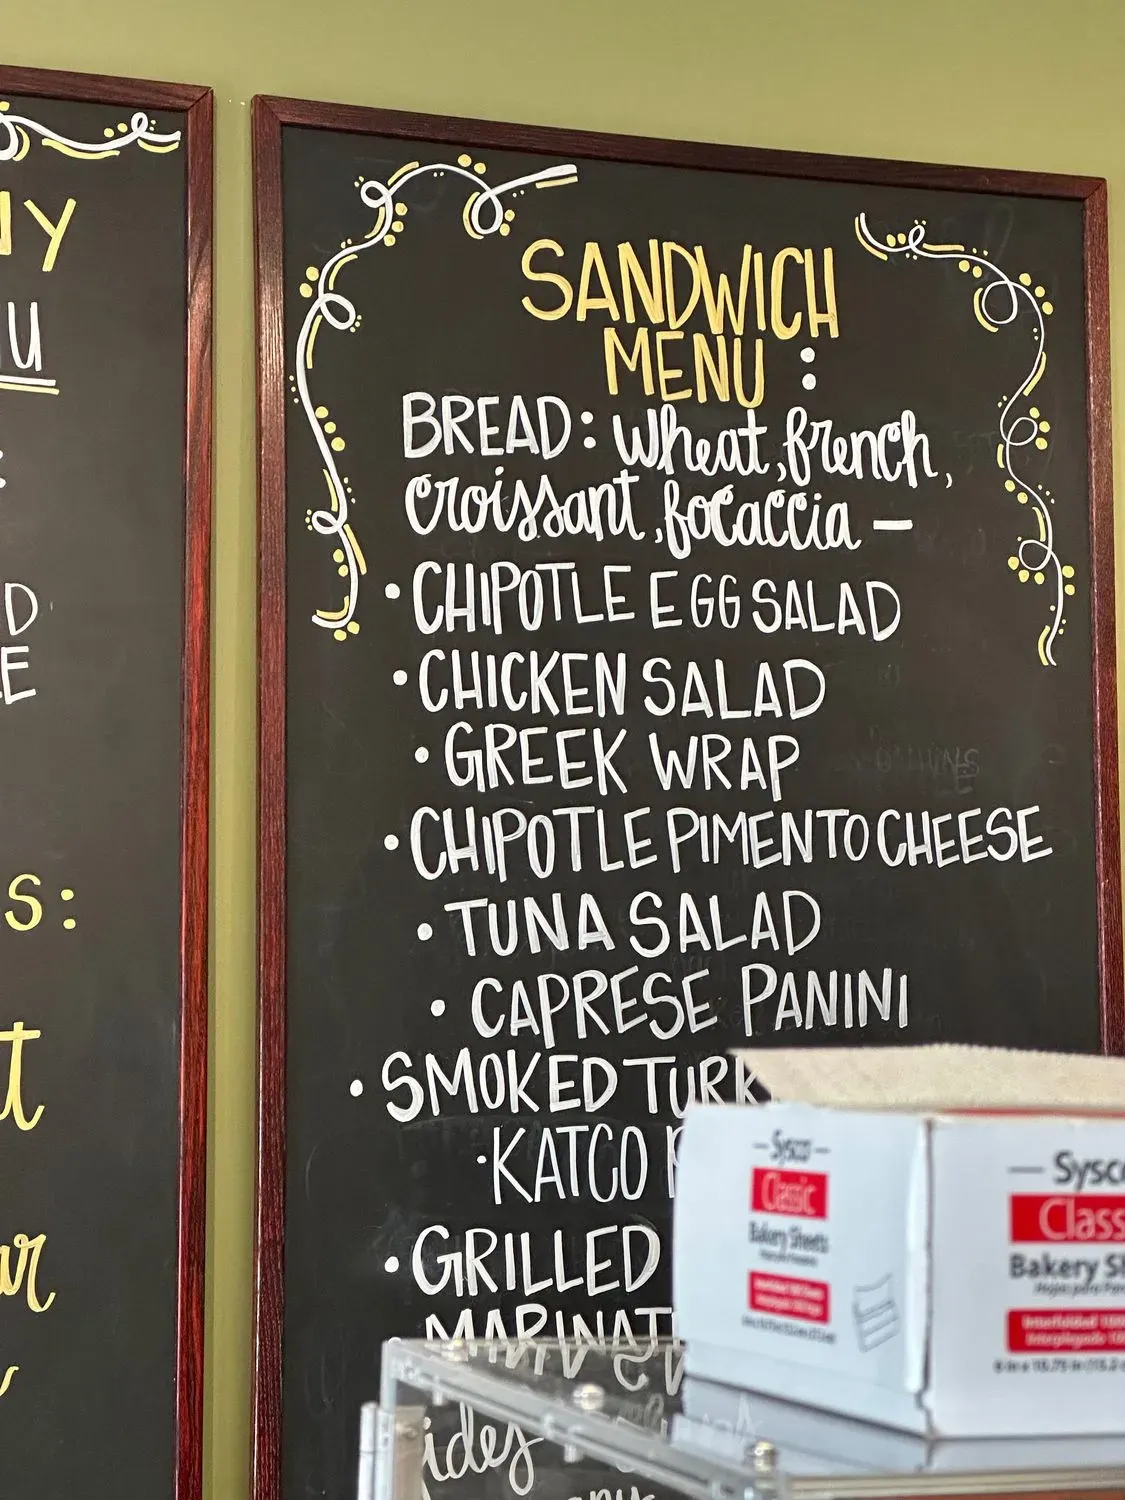 SANDWICH
MENU :
BREAD: wheat, french,
croissant, focaccia —
• CHIPOTLE EGG SALAD
• CHICKEN SALAD
• GREEK WRAP
• CHIPOTLE PIMENTO CHEESE
• TUNA SALAD
• CAPRESE PANINI
• SMOKED TURK
• KATCO
• GRILLED
• MARINAT
ides
— Sysco —
Classic
Bakery Sheets
— Sysc
Class
Bakery Sh
NY
U
D
E
S:
t
ar